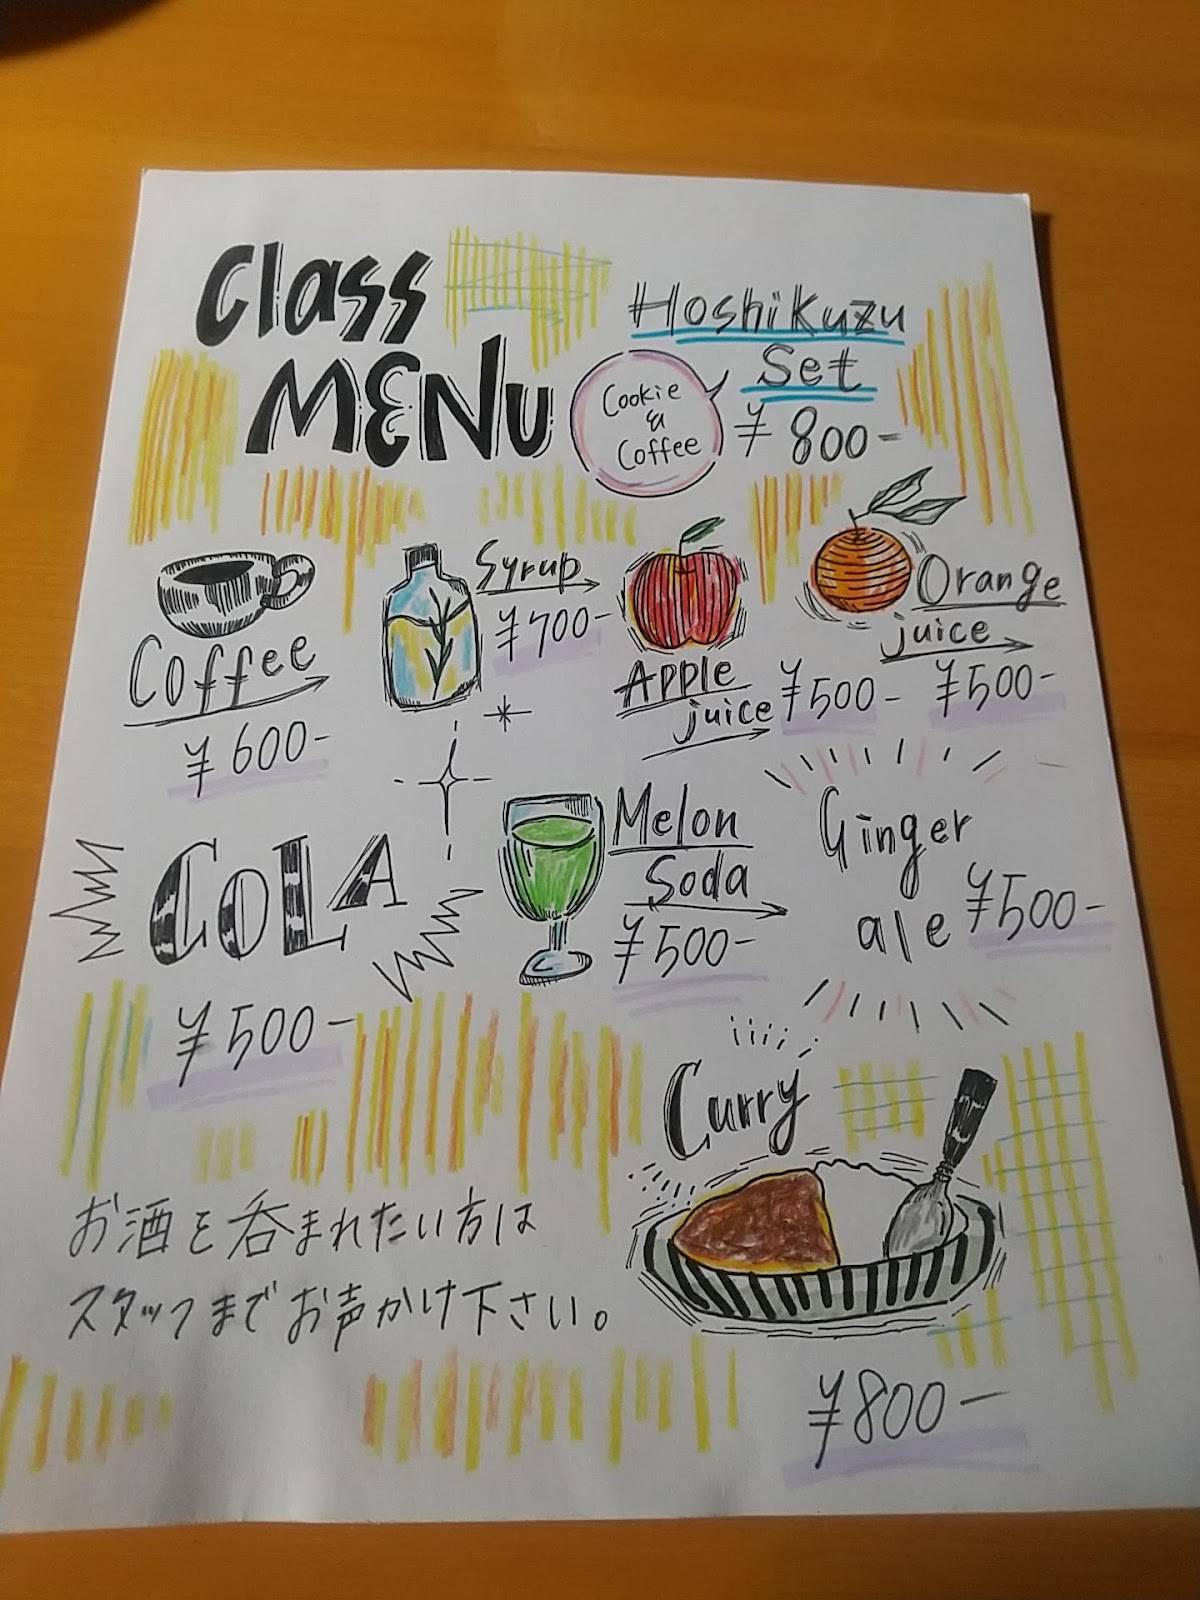 Class
MENU
Hoshikuzu
Set
Cookie
&
Coffee
¥800-
Coffee
¥600-
Syrup
¥700-
Apple
juice
¥500-
Orange
juice
¥500-
COLA
¥500-
Melon
Soda
¥500-
Ginger
ale
¥500-
Curry
¥800-
お酒を呑まれたい方は
スタッフまでお声かけ下さい。